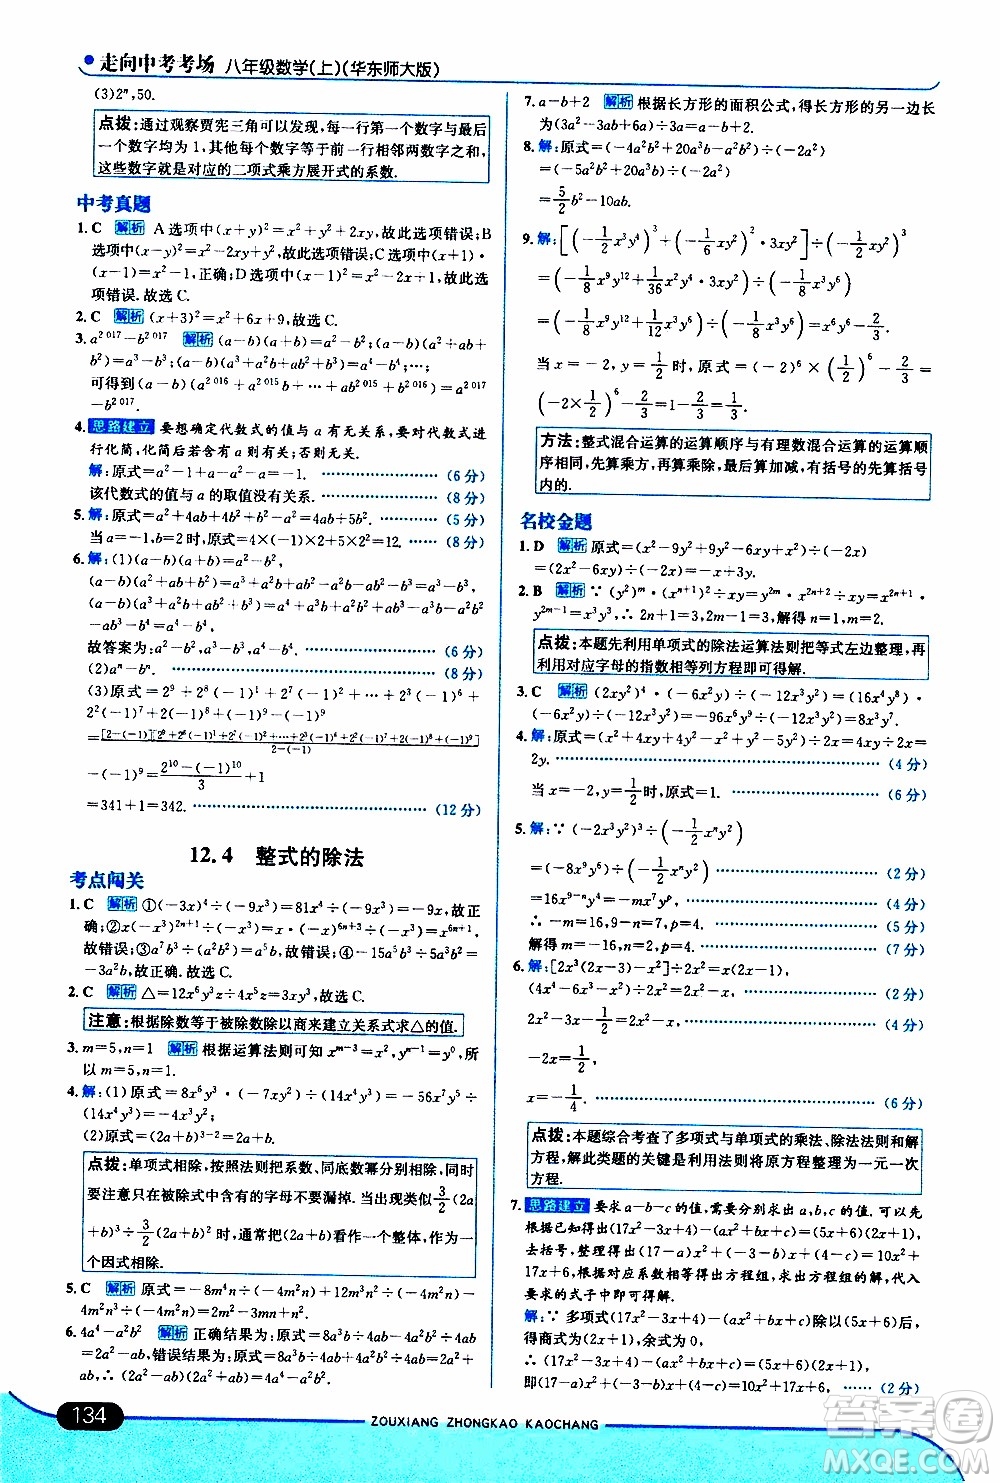 走向中考考场 八年级数学(上)(华东师大版)
(3)2ⁿ,50.
点拨:通过观察贾宪三角可以发现,每一行第一个数字与最后
一个数字均为 1,其他每个数字等于前一行相邻两数字之和,
这些数字就是对应的二项式乘方展开式的系数.
中考真题
1.C 解析 A选项中(x+y)²=x²+y²+2xy,故此选项错误;B
选项中(x-y)²=x²-2xy+y²,故此选项错误;C选项中
(x-1)²=x²-2x+1,正确;D选项中(x-1)²=x²-2x+1,故此
选项错误.故选C.
2.C 解析 (x+3)²=x²+6x+9,故选C.
3.a²⁰¹⁷-b²⁰¹⁷ 解析 (a-b)(a+b)=a²-b²,(a-b)(a²+ab+
b²)=a³-b³;(a-b)(a³+a²b+ab²+b³)=a⁴-b⁴,…;
可得到(a-b)(a²⁰¹⁶+a²⁰¹⁵b+…+ab²⁰¹⁵+b²⁰¹⁶)=a²⁰¹⁷
-b²⁰¹⁷.
4.思路建立 要想确定代数式的值与a有无关系,要对代数式进
行化简,化简后若有a,则有关;否则无关.
解:原式=a²-1+a-a²-a=-1. (6分)
该代数式的值与a的取值没有关系. (8分)
5.解:原式=a²+4ab+4b²+b²-a²=4ab+5b². (5分)
当a=-1,b=2时,原式=4×(-1)×2+5×2²=12. (8分)
6.解:(1)(a-b)(a+b)=a²-b²,
(a-b)(a²+ab+b²)=a³+a²b+ab²-a²b-ab²-b³=a³-b³,
(a-b)(a³+a²b+ab²+b³)=a⁴+a³b+a²b²+ab³-a³b-a²b²
-ab³-b⁴=a⁴-b⁴,
故答案为:a²-b²,a³-b³,a⁴-b⁴. (6分)
(2)aⁿ-bⁿ. (8分)
(3)原式=2⁹+2⁸×(-1)¹+2⁷(-1)²+…+2³×(-1)⁶+
2²(-1)⁷+2¹×(-1)⁸+2⁰(-1)⁹-(-1)⁹
=[2-(-1)][2⁹+2⁸(-1)¹+2⁷(-1)²+…+2¹×(-1)⁸+(-1)⁹]/2-(-1)
-(-1)⁹=(2¹⁰-(-1)¹⁰)/(2+1)+1
=341+1=342. (12分)
12.4 整式的除法
考点闯关
1.C 解析 ①(-3x)⁴÷(-9x³)=81x⁴÷(-9x³)=-9x,故正
确;②x(x³)²ⁿ⁺¹÷(-x³)²ⁿ=x(x⁶ⁿ⁺³)÷(x⁶ⁿ)=x⁴,
故错误;③a⁷b³÷(a²b³)=a⁵,故错误;④12a³b²÷(-4b)=
-3a³b,故正确.故选C.
2.C 解析 △=12x⁶y³z÷4x⁵z=3xy³,故选C.
注意:根据除数等于被除数除以商来建立关系式求△的值.
3.m=5,n=1 解析 根据运算法则可知xᵐ⁻³=x²,yⁿ⁻¹=y⁰,所
以m=5,n=1.
4.解:(1)原式=8x⁶y³·(-7xy²)÷(14x⁴y³)=-56x⁷y⁵÷
(14x⁴y³)=-4x³y²;
(2)原式=(2a+b)⁴⁻²=(2a+b)²=4a²+4ab+b².
点拨:单项式相除,按照法则把系数、同底数幂分别相除,同时
要注意只在被除式中含有的字母不要漏掉.当出现类似3/2(2a
+b)³÷3/2(2a+b)时,通常把(2a+b)看作一个整体,作为一个
因式相除.
5.C 解析 原式=-8m⁴n÷(-4m²n)+12m³n²÷(-4m²n)-
4m²n³÷(-4m²n)=2m²-3mn+n².
6.4a⁴-a²b² 解析 正确结果为:原式=8a³b÷2ab-2ab³÷2ab
=4a²-b²,错误结果为:原式=8a³b÷2ab-2ab³=4a²-2ab³÷2
ab,∴(4a²-b²)·a²=4a⁴-a²b².
7.a-b+2 解析 根据长方形的面积公式,得长方形的另一边长
为(3a²-3ab+6a)÷3a=a-b+2.
8.解:原式=(-4a²b²+20a³b-a²b²)÷(2a²)
=(-5a²b²+20a³b)÷(2a²)
=-5/2b²-10ab.
9.解:[(-1/2x³y⁴)³+(-1/6xy²)²·3xy²]÷(-1/2xy²)³
=(-1/8x⁹y¹²+1/36x²y⁴·3xy²)÷(-1/8x³y⁶)
=(-1/8x⁹y¹²+1/12x³y⁶)÷(-1/8x³y⁶)=x⁶y⁶-2/3,
当x=-2,y=1/2时,原式=(-2)⁶×(1/2)⁶-2/3=
(-2×1/2)⁶-2/3=1-2/3=1/3.
方法:整式混合运算的运算顺序与有理数混合运算的运算顺
序相同,先算乘方,再算乘除,最后算加减,有括号的先算括号
内的.
名校金题
1.D 解析 原式=(x²-9y²+9y²-6xy+x²)÷(-2x)
=(2x²-6xy)÷(-2x)=-x+3y.
2.B 解析 ∵(yᵐ)²·(xⁿ⁺¹)²÷xy=y²ᵐ·x²ⁿ⁺²÷xy=x²ⁿ⁺¹·
y²ᵐ⁻¹=x³y³,∴2n+1=3,2m-1=3,解得n=1,m=2.
点拨:本题先利用单项式的除法运算法则把等式左边整理,再
利用对应字母的指数相等列方程即可得解.
3.C 解析 (2xy²)⁴·(-6x²y)÷(-12x³y²)=(16x⁴y⁸)·
(-6x²y)÷(-12x³y²)=-96x⁶y⁹÷(-12x³y²)=8x³y⁷.
4.解:原式=(x²+4xy+4y²-x²+y²-5y²)÷2x=4xy÷2x=
2y. (4分)
当x=-2,y=1/2时,原式=1. (6分)
5.解:∵(-2x³y²)³÷(-1/2xⁿy²)
=(-8x⁹y⁶)÷(-1/2xⁿy²) (2分)
=16x⁹⁻ⁿy⁴=-mx⁷yᵖ, (4分)
∴-m=16,9-n=7,p=4. (5分)
解得m=-16,n=2,p=4. (7分)
6.解:[2x³(2x-3)-x²]÷(2x²)=x(2x-1),
(4x⁴-6x³-x²)÷(2x²)=2x²-x, (2分)
2x²-3x-1/2=2x²-x, (4分)
-2x=1/2,
x=-1/4. (6分)
点拨:本题综合考查了多项式与单项式的乘法、除法法则和解
方程,解此类题的关键是利用法则将原方程整理为一元一次
方程.
7.思路建立 要求a-b-c的值,需要分别求出a,b,c的值,可以先
根据已知得出(17x²-3x+4)-(ax²+bx+c)=(5x)(2x+1),
去括号,整理得出(17-a)x²+(-3-b)x+(4-c)=10x²+
5x,根据对应系数相等得出方程组,求出方程组的解,代入
要求的式子中即可得解.
解:∵多项式(17x²-3x+4)-(ax²+bx+c)能被5x整除,
得出商式为(2x+1),余式为0.
∴(17x²-3x+4)-(ax²+bx+c)=(5x)(2x+1),
即(17-a)x²+(-3-b)x+(4-c)=10x²+5x, (2分)
134
ZOUXIANG ZHONGKAO KAOCHANG
答案圈
MXQE.COM